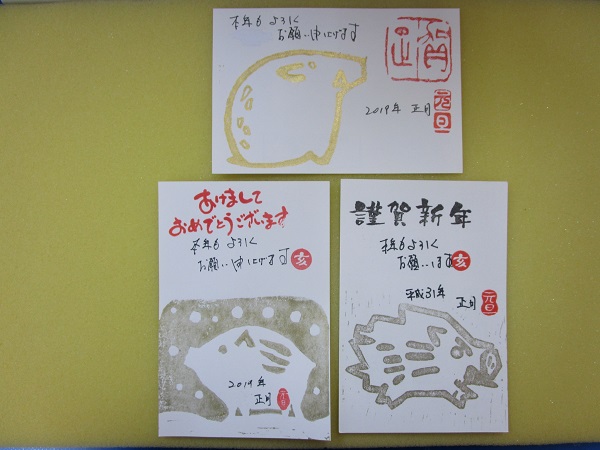 本年もよろしく
お願い申し上げます
賀正
2019年 正月
元旦
あけまして
おめでとうございます
本年もよろしく
お願い申し上げます
亥
2019年
正月
元旦
謹賀新年
本年もよろしく
お願いします
亥
平成31年
正月
元旦